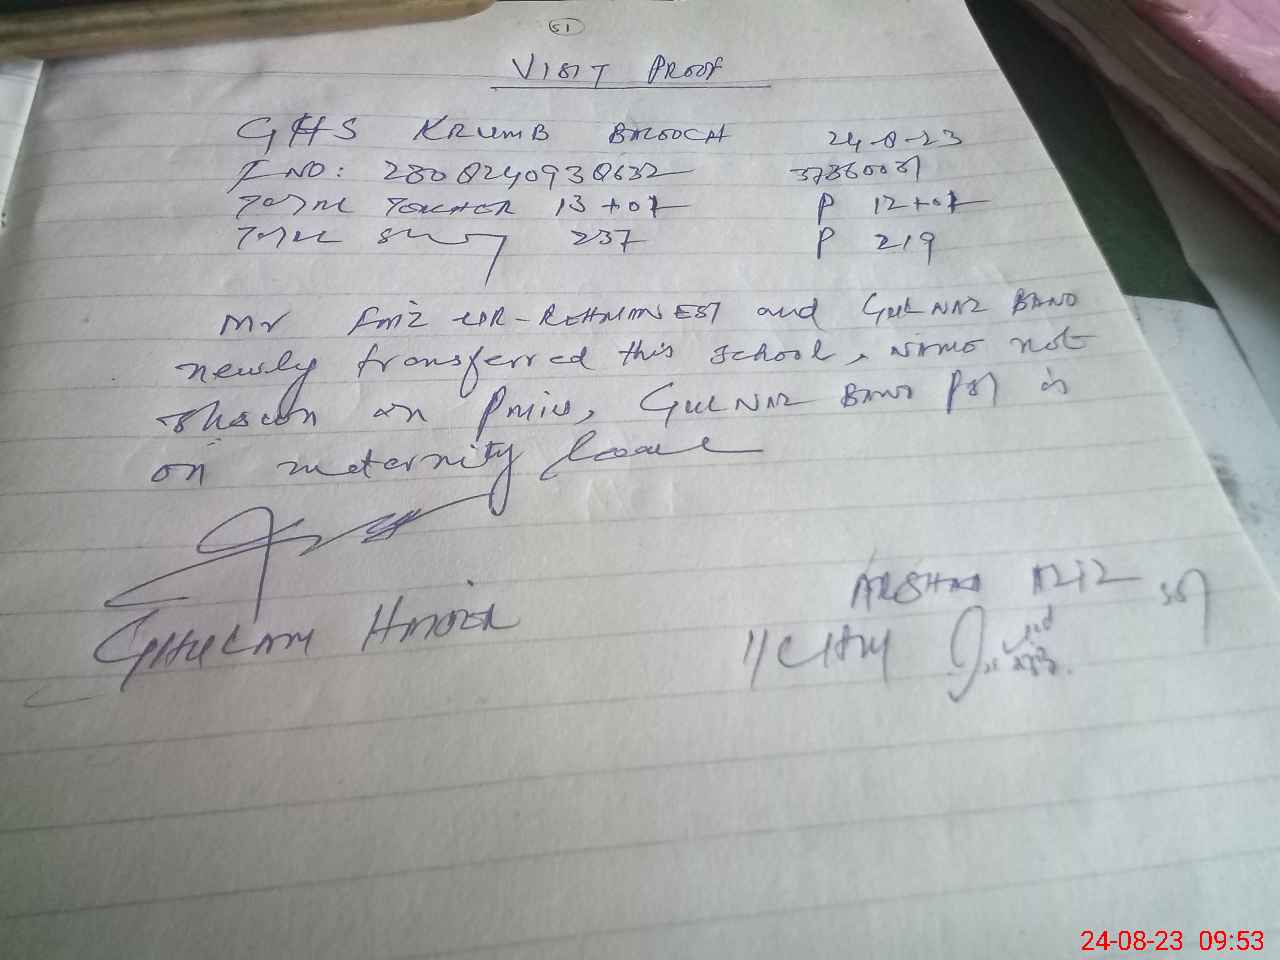 51
VISIT PROOF
GHS KRUMB BALOOCH 24-8-23
I NO: 2808240938632 37360031
TOTAL TEACHER 13+01 P 12+01
TOTAL 237 P 219
Mr FAIZ-UR-REHMAN EST and GULNAZ BANO
newly transferred this school, NAME not
shown on PMIU, GULNAZ BANO PST is
on maternity leave
GHULAM HAIDER
ARSHAD AZIZ SST
I/C H/M
24-08-23 09:53